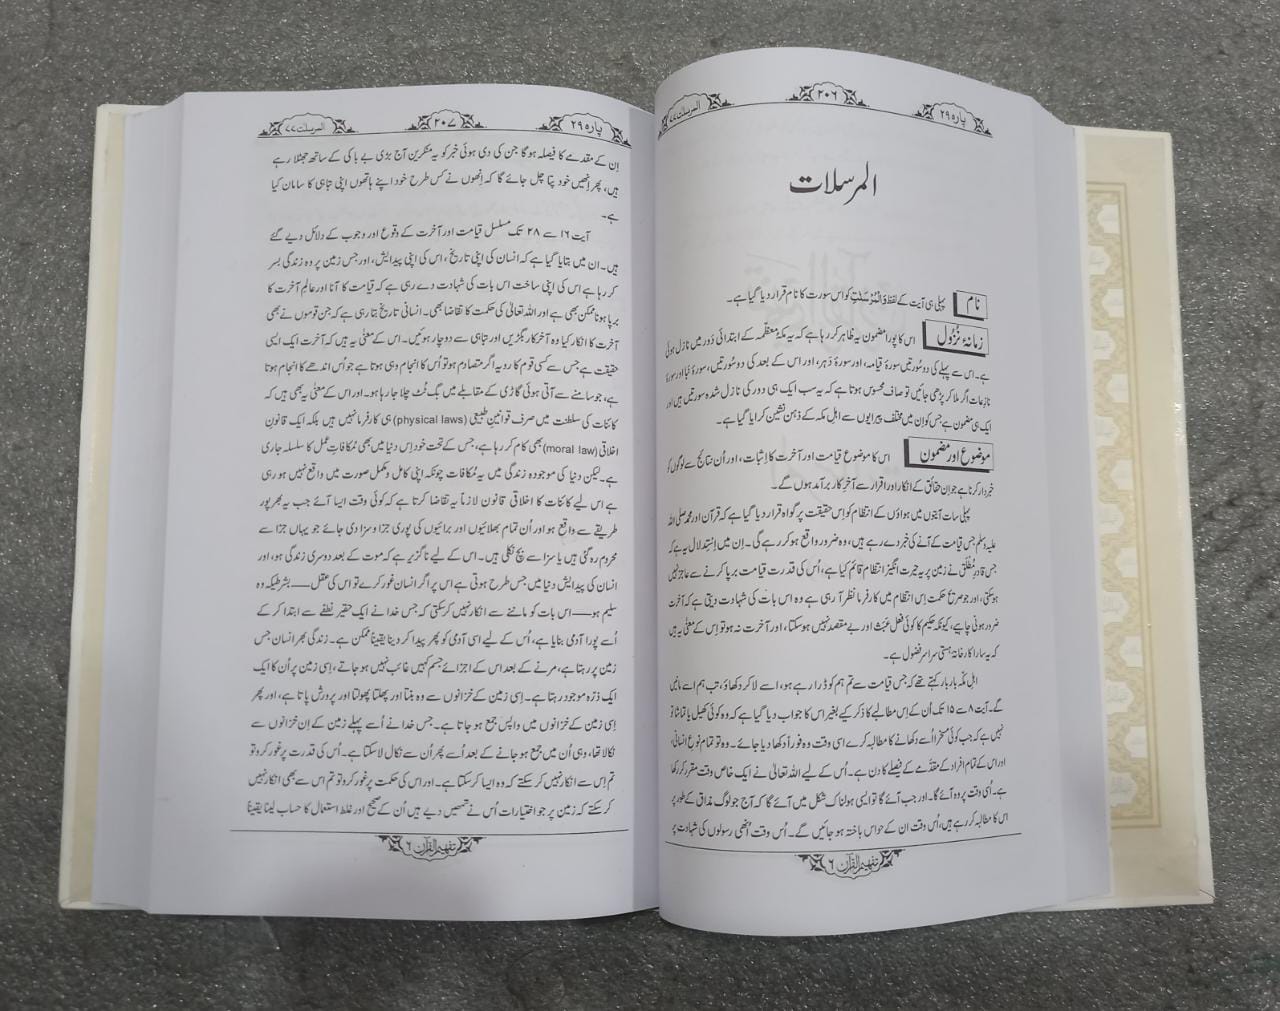 پارہ ۲۹
۲۰۶
المرسلت ۷۷
المرسلات
نام
پہلی ہی آیت کے لفظ وَالْمُرْسَلٰتِ کو اس سورت کا نام قرار دیا گیا ہے۔
زمانۂ نزُول
اس کا پورا مضمون یہ ظاہر کر رہا ہے کہ یہ مکّۂ معظمہ کے ابتدائی دَور میں نازل ہوئی
ہے۔ اس سے پہلے کی دو سُورتیں سورۂ قیامہ، اور سورۂ دَہر، اور اس کے بعد کی دو سُورتیں، سورۂ نبا اور سورۂ
نازعات اگر ملا کر پڑھی جائیں تو صاف محسوس ہوتا ہے کہ یہ سب ایک ہی دور کی نازل شدہ سورتیں ہیں اور
ایک ہی مضمون ہے جس کو اِن میں مختلف پیرایوں سے اہلِ مکہ کے ذہن نشین کرایا گیا ہے۔
موضوع اور مضمون
اس کا موضوع قیامت اور آخرت کا اِثبات، اور اُن نتائج سے لوگوں کو
خبردار کرنا ہے جو اِن حقائق کے انکار اور اقرار سے آخرِ کار برآمد ہوں گے۔
پہلی سات آیتوں میں ہواؤں کے انتظام کو اِس حقیقت پر گواہ قرار دیا گیا ہے کہ قرآن اور محمد صلی اللہ
علیہ وسلم جس قیامت کے آنے کی خبر دے رہے ہیں، وہ ضرور واقع ہو کر رہے گی۔ اِن میں اِستدلال یہ ہے کہ
جس قادرِ مُطلَق نے زمین پر یہ حیرت انگیز انتظام قائم کیا ہے، اُس کی قدرت قیامت برپا کرنے سے عاجز نہیں
ہو سکتی، اور جو صریح حکمت اِس انتظام میں کارفرما نظر آ رہی ہے وہ اس بات کی شہادت دیتی ہے کہ آخرت
ضرور ہونی چاہیے، کیونکہ حکیم کا کوئی فعل عَبَث اور بے مقصد نہیں ہو سکتا، اور آخرت نہ ہو تو اِس کے معنٰی یہ ہیں
کہ یہ سارا کارخانۂ ہستی سراسر فضول ہے۔
اہلِ مکّہ بار بار کہتے تھے کہ جس قیامت سے تم ہم کو ڈرا رہے ہو، اسے لا کر دکھاؤ، تب ہم اسے مانیں
گے۔ آیت ۸ سے ۱۵ تک اُن کے اِس مطالبے کا ذکر کیے بغیر اس کا جواب دیا گیا ہے کہ وہ کوئی کھیل یا تماشا تو
نہیں ہے کہ جب کوئی مسخرا اُسے دکھانے کا مطالبہ کرے اسی وقت وہ فوراً دکھا دیا جائے۔ وہ تو تمام نوعِ انسانی،
اور اس کے تمام افراد کے مقدّمے کے فیصلے کا دن ہے۔ اُس کے لیے اللہ تعالیٰ نے ایک خاص وقت مقرر کر رکھا
ہے۔ اُسی وقت پر وہ آئے گا۔ اور جب آئے گا تو ایسی ہولناک شکل میں آئے گا کہ آج جو لوگ مذاق کے طور پر
اس کا مطالبہ کر رہے ہیں، اُس وقت ان کے حواس باختہ ہو جائیں گے۔ اُس وقت اُنھی رسولوں کی شہادت پر
تفہیم القرآن ۶
پارہ ۲۹
۲۰۷
المرسلت ۷۷
اِن کے مقدمے کا فیصلہ ہو گا جن کی دی ہوئی خبر کو یہ منکرین آج بڑی بے باکی کے ساتھ جھٹلا رہے
ہیں، پھر اِنھیں خود پتا چل جائے گا کہ اِنھوں نے کس طرح خود اپنے ہاتھوں اپنی تباہی کا سامان کیا
ہے۔
آیت ۱۶ سے ۲۸ تک مسلسل قیامت اور آخرت کے وقوع اور وجوب کے دلائل دیے گئے
ہیں۔ ان میں بتایا گیا ہے کہ انسان کی اپنی تاریخ، اس کی اپنی پیدایش، اور جس زمین پر وہ زندگی بسر
کر رہا ہے اس کی اپنی ساخت اس بات کی شہادت دے رہی ہے کہ قیامت کا آنا اور عالمِ آخرت کا
برپا ہونا ممکن بھی ہے اور اللہ تعالیٰ کی حکمت کا تقاضا بھی۔ انسانی تاریخ بتا رہی ہے کہ جن قوموں نے بھی
آخرت کا انکار کیا وہ آخر کار بگڑیں اور تباہی سے دوچار ہوئیں۔ اس کے معنٰی یہ ہیں کہ آخرت ایک ایسی
حقیقت ہے جس سے کسی قوم کا رویہ اگر متصادم ہو تو اُس کا انجام وہی ہوتا ہے جو اُس اندھے کا انجام ہوتا
ہے، جو سامنے سے آتی ہوئی گاڑی کے مقابلے میں بگ ٹُٹ چلا جا رہا ہو۔ اور اس کے معنٰی یہ بھی ہیں کہ
کائنات کی سلطنت میں صرف قوانینِ طبیعی (physical laws) ہی کارفرما نہیں ہیں بلکہ ایک قانونِ
اخلاقی (moral law) بھی کام کر رہا ہے، جس کے تحت خود اِس دنیا میں بھی مُکافاتِ عمل کا سلسلہ جاری
ہے۔ لیکن دنیا کی موجودہ زندگی میں یہ مُکافات چونکہ اپنی کامل و مکمل صورت میں واقع نہیں ہو رہی
ہے اس لیے کائنات کا اخلاقی قانون لازماً یہ تقاضا کرتا ہے کہ کوئی وقت ایسا آئے جب یہ بھرپور
طریقے سے واقع ہو اور اُن تمام بھلائیوں اور برائیوں کی پوری جزا و سزا دی جائے جو یہاں جزا سے
محروم رہ گئی ہیں یا سزا سے بچ نکلی ہیں۔ اس کے لیے ناگزیر ہے کہ موت کے بعد دوسری زندگی ہو، اور
انسان کی پیدایش دنیا میں جس طرح ہوتی ہے اس پر اگر انسان غور کرے تو اس کی عقل——بشرطیکہ وہ
سلیم ہو——اس بات کو ماننے سے انکار نہیں کر سکتی کہ جس خدا نے ایک حقیر نطفے سے ابتدا کر کے
اُسے پورا آدمی بنایا ہے، اُس کے لیے اسی آدمی کو پھر پیدا کر دینا یقیناً ممکن ہے۔ زندگی بھر انسان جس
زمین پر رہتا ہے، مرنے کے بعد اس کے اجزائے جسم کہیں غائب نہیں ہو جاتے، اِسی زمین پر اُن کا ایک
ایک ذرّہ موجود رہتا ہے۔ اِسی زمین کے خزانوں سے وہ بنتا اور پھلتا پھولتا اور پرورش پاتا ہے، اور پھر
اِسی زمین کے خزانوں میں واپس جمع ہو جاتا ہے۔ جس خدا نے اُسے پہلے زمین کے اِن خزانوں سے
نکالا تھا، وہی اُن میں جمع ہو جانے کے بعد اُسے پھر اُن سے نکال لا سکتا ہے۔ اُس کی قدرت پر غور کرو تو
تم اِس سے انکار نہیں کر سکتے کہ وہ ایسا کر سکتا ہے۔ اور اس کی حکمت پر غور کرو تو تم اس سے بھی انکار نہیں
کر سکتے کہ زمین پر جو اختیارات اُس نے تمھیں دیے ہیں اُن کے صحیح اور غلط استعمال کا حساب لینا یقیناً
تفہیم القرآن ۶